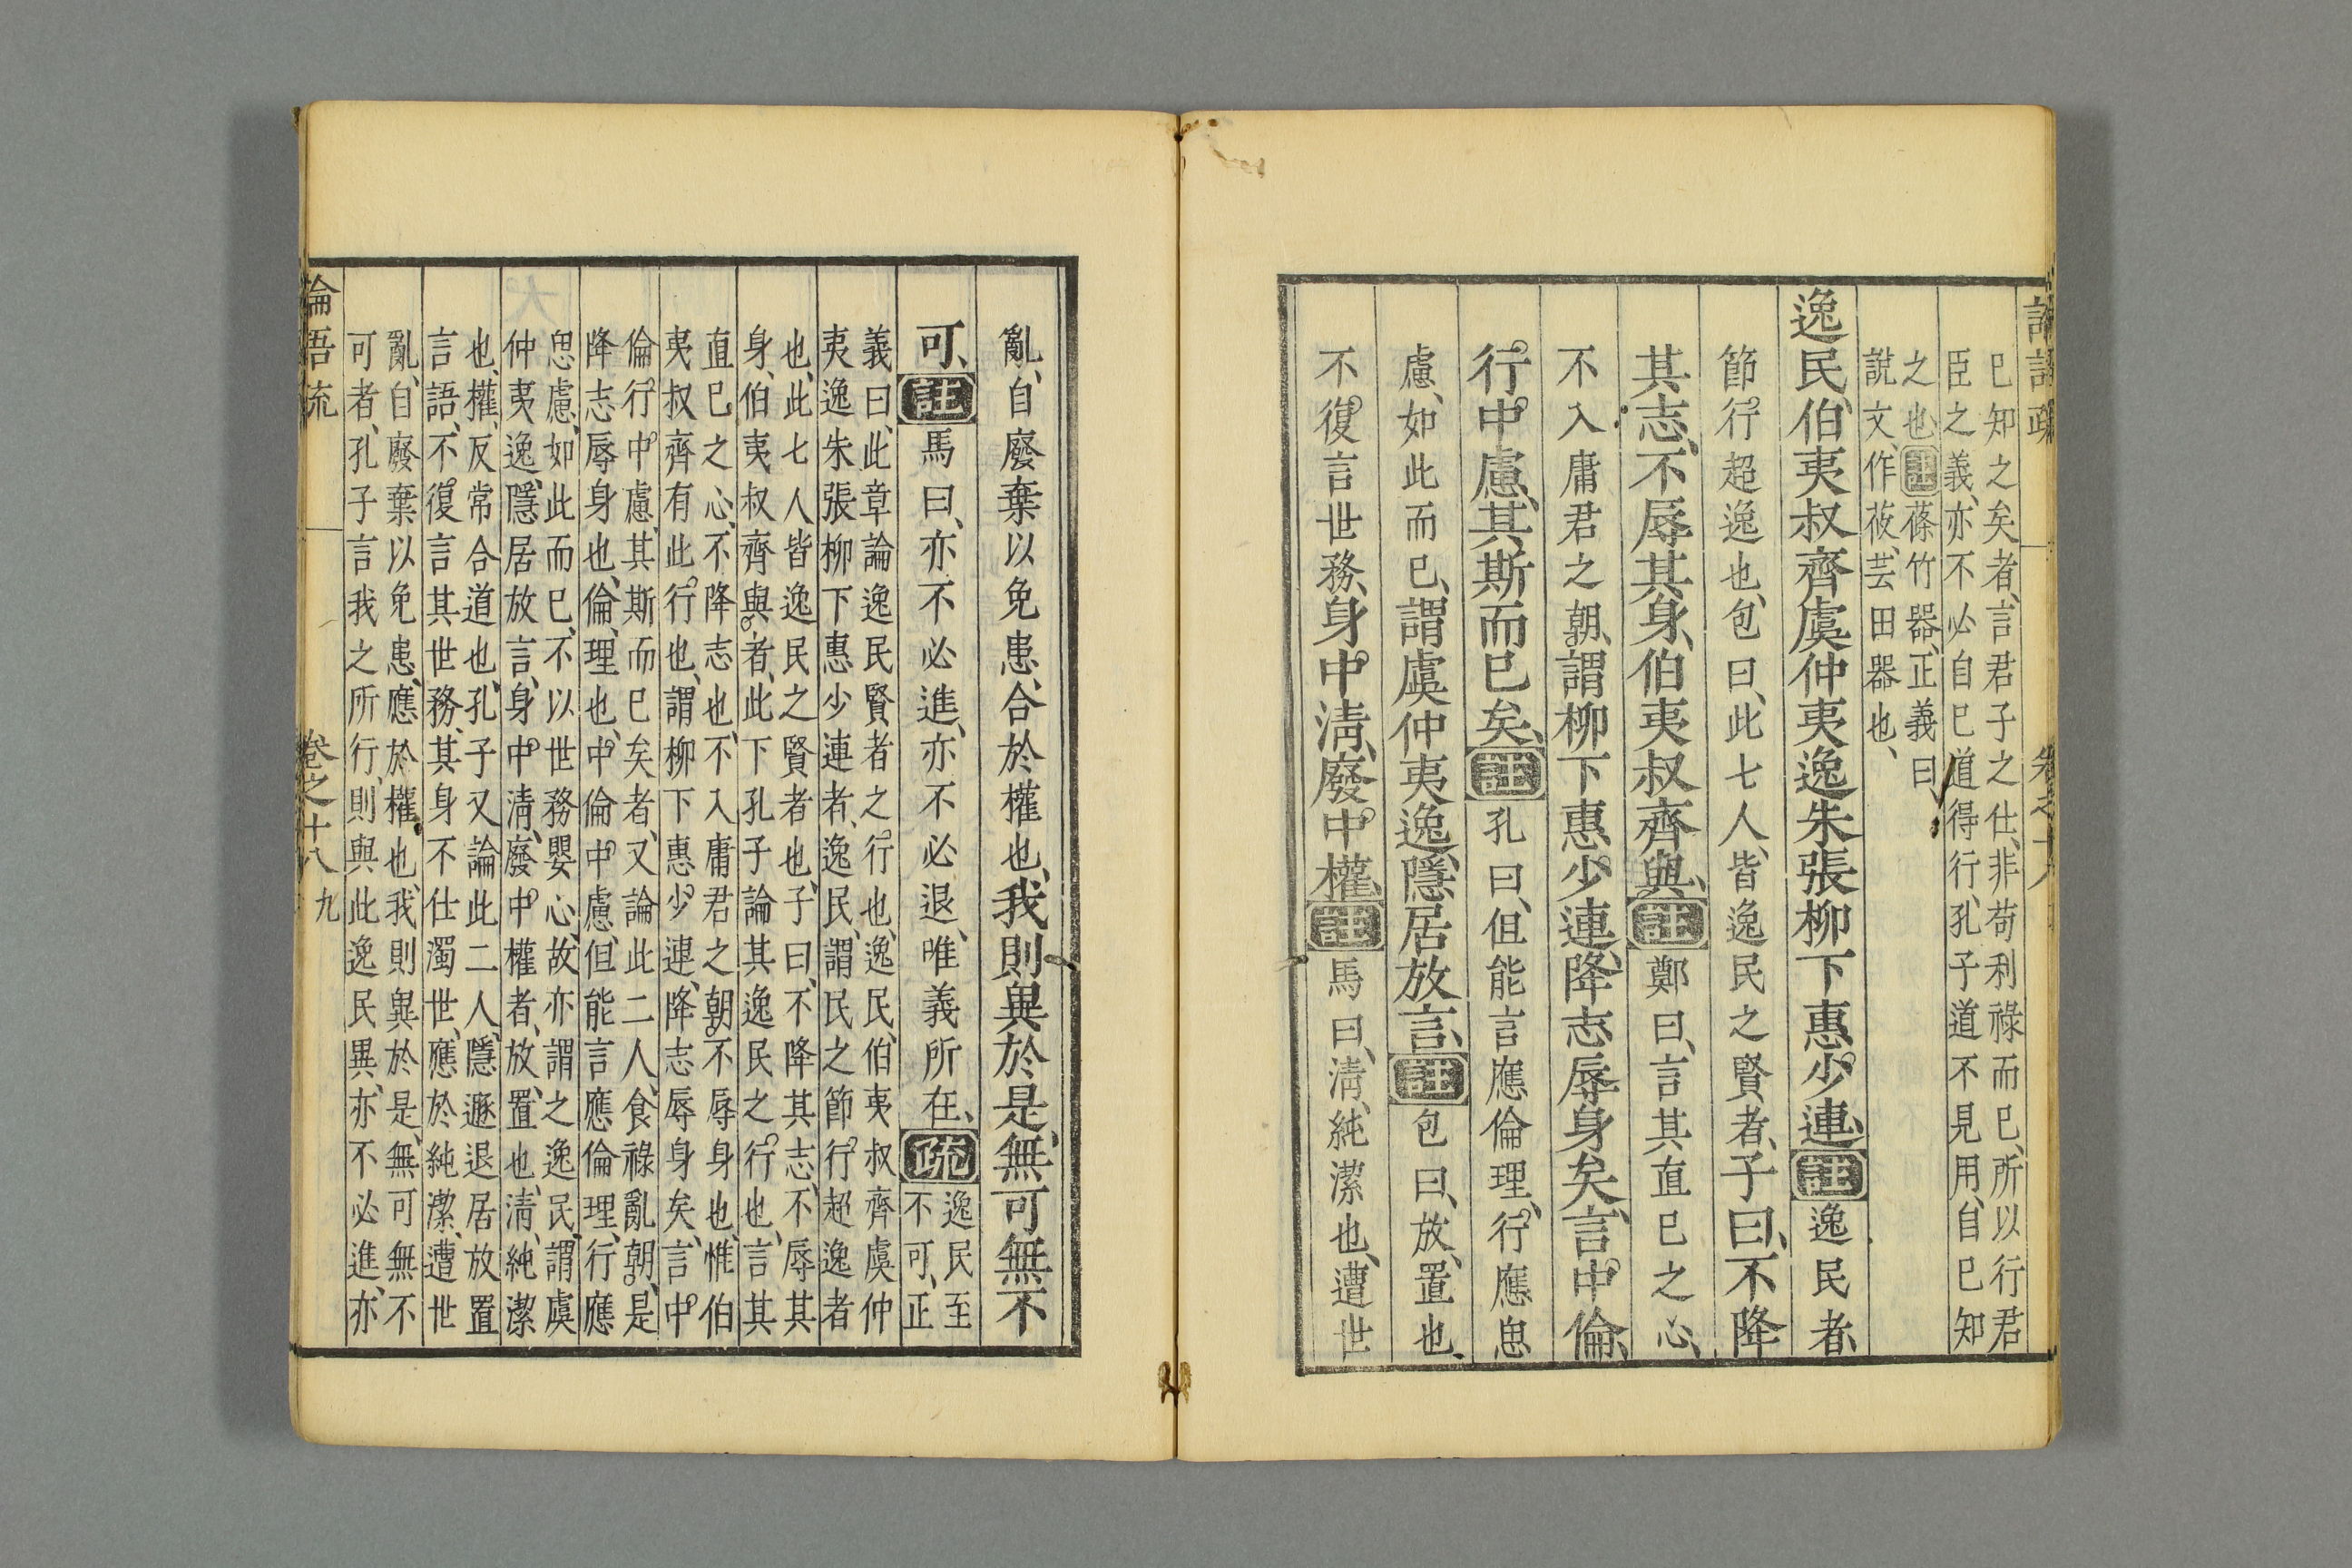 論語疏
卷之十八
已知之矣者、言君子之仕、非苟利祿而已、所以行君
臣之義、亦不必自已道得行、孔子道不見用、自已知
之也註蓧竹器、正義曰、
說文、作莜、芸田器也、
逸民、伯夷叔齊虞仲夷逸朱張柳下惠少連、註逸民者、
節行超逸也、包曰、此七人、皆逸民之賢者、子曰、不降
其志、不辱其身、伯夷叔齊與、註鄭曰、言其直已之心、
不入庸君之朝、謂柳下惠少連、降志辱身矣、言中倫、
行中慮、其斯而已矣、註孔曰、但能言應倫理、行應思
慮、如此而已、謂虞仲夷逸、隱居放言、註包曰、放、置也、
不復言世務、身中淸、廢中權、註馬曰、淸、純潔也、遭世
亂、自廢棄以免患、合於權也、我則異於是、無可無不
可、註馬曰、亦不必進、亦不必退、唯義所在、疏逸民至
不可、正
義曰、此章論逸民賢者之行也、逸民、伯夷叔齊虞仲
夷逸朱張柳下惠少連者、逸民、謂民之節行超逸者
也、此七人皆逸民之賢者也、子曰、不降其志、不辱其
身、伯夷叔齊與者、此下孔子論其逸民之行也、言其
直已之心、不降志也、不入庸君之朝、不辱身也、惟伯
夷叔齊有此行也、謂柳下惠少連、降志辱身矣、言中
倫行中慮、其斯而已矣者、又論此二人、食祿亂朝、是
降志辱身也、倫、理也、中倫中慮、但能言應倫理、行應
思慮、如此而已、不以世務嬰心、故亦謂之逸民、謂虞
仲夷逸、隱居放言、身中淸、廢中權者、放、置也、淸、純潔
也、權、反常合道也、孔子又論此二人、隱遯退居、放置
言語、不復言其世務、其身不仕濁世、應於純潔、遭世
亂、自廢棄以免患、應於權也、我則異於是、無可無不
可者、孔子言我之所行、則與此逸民異、亦不必進、亦
論語疏
卷之十八
九